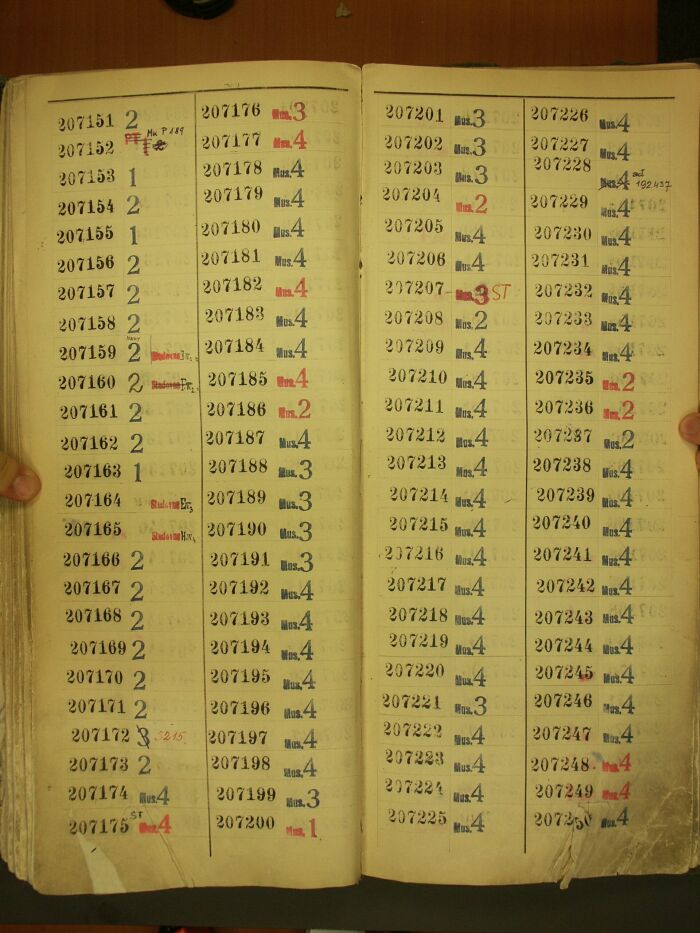 207151 2
207152 Mu P 189
207153 1
207154 2
207155 1
207156 2
207157 2
207158 2
207159 2 Studovna
207160 2 Studovna
207161 2
207162 2
207163 1
207164 Studovna
207165 Studovna
207166 2
207167 2
207168 2
207169 2
207170 2
207171 2
207172 3 5215
207173 2
207174 Mus. 4
207175 ST Mus. 4
207176 Mus. 3
207177 Mus. 4
207178 Mus. 4
207179 Mus. 4
207180 Mus. 4
207181 Mus. 4
207182 Mus. 4
207183 Mus. 4
207184 Mus. 4
207185 Mus. 4
207186 Mus. 2
207187 Mus. 4
207188 Mus. 3
207189 Mus. 3
207190 Mus. 3
207191 Mus. 3
207192 Mus. 4
207193 Mus. 4
207194 Mus. 4
207195 Mus. 4
207196 Mus. 4
207197 Mus. 4
207198 Mus. 4
207199 Mus. 3
207200 Mus. 1
207201 Mus. 3
207202 Mus. 3
207203 Mus. 3
207204 Mus. 2
207205 Mus. 4
207206 Mus. 4
207207 Mus. 3 ST
207208 Mus. 2
207209 Mus. 4
207210 Mus. 4
207211 Mus. 4
207212 Mus. 4
207213 Mus. 4
207214 Mus. 4
207215 Mus. 4
207216 Mus. 4
207217 Mus. 4
207218 Mus. 4
207219 Mus. 4
207220 Mus. 4
207221 Mus. 3
207222 Mus. 4
207223 Mus. 4
207224 Mus. 4
207225 Mus. 4
207226 Mus. 4
207227 Mus. 4
207228 Mus. 4 ad 192.437
207229 Mus. 4
207230 Mus. 4
207231 Mus. 4
207232 Mus. 4
207233 Mus. 4
207234 Mus. 4
207235 Mus. 2
207236 Mus. 2
207237 Mus. 2
207238 Mus. 4
207239 Mus. 4
207240 Mus. 4
207241 Mus. 4
207242 Mus. 4
207243 Mus. 4
207244 Mus. 4
207245 Mus. 4
207246 Mus. 4
207247 Mus. 4
207248 Mus. 4
207249 Mus. 4
207250 Mus. 4